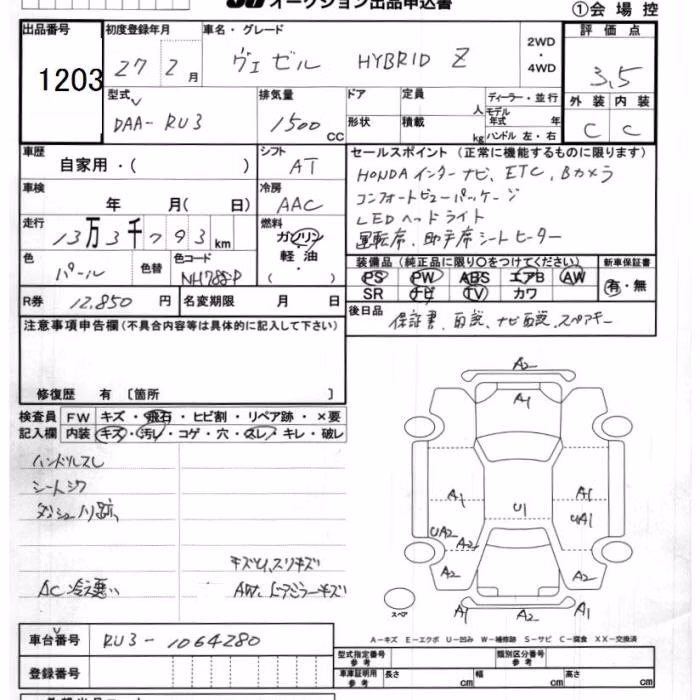 オークション出品申込書
①会場控
出品番号 初度登録年月 車名・グレード 評価点
1203 27年2月 ヴェゼル HYBRID Z 2WD・4WD 3.5
型式 排気量 ドア 定員 人 ディーラー・並行 外装 内装
DAA-RU3 1500cc 形状 積載 kg モデル年式 年 ハンドル 左・右 C C
車歴 シフト セールスポイント (正常に機能するものに限ります)
自家用・( ) AT HONDAインターナビ、ETC、Bカメラ
車検 冷房 コンフォートビューパッケージ
年 月( 日) AAC LEDヘッドライト
走行 燃料 運転席、助手席シートヒーター
13万3千793km ガソリン・軽油・( )
色 色替 色コード 装備品(純正品に限り○をつけてください) 新車保証書
パール NH788P PS PW ABS エアB AW 有・無
SR ナビ TV カワ
R券 12,850円 名変期限 月 日 後日品
保証書、取説、ナビ取説、スペアキー
注意事項申告欄(不具合内容等は具体的に記入して下さい)
修復歴 有 〔箇所 〕
検査員記入欄 FW キズ・飛石・ヒビ割・リペア跡・×要
内装 キズ・汚レ・コゲ・穴・スレ・キレ・破レ
ハンドルスレ
シートシワ
ダッシュノリ跡
キズU、スリキズ
AC冷え悪い
AW、ドアミラーキズ
A2
A1
A1 U1 A1
UA2 UA1
A2
A2 A2
スペア A1 A2 A1
A-キズ E-エクボ U-凹み W-補修跡 S-サビ C-腐食 XX-交換済
車台番号 RU3-1064280
型式指定番号 参考 類別区分番号 参考
登録番号 車庫証明用 参考 長さ cm 幅 cm 高さ cm